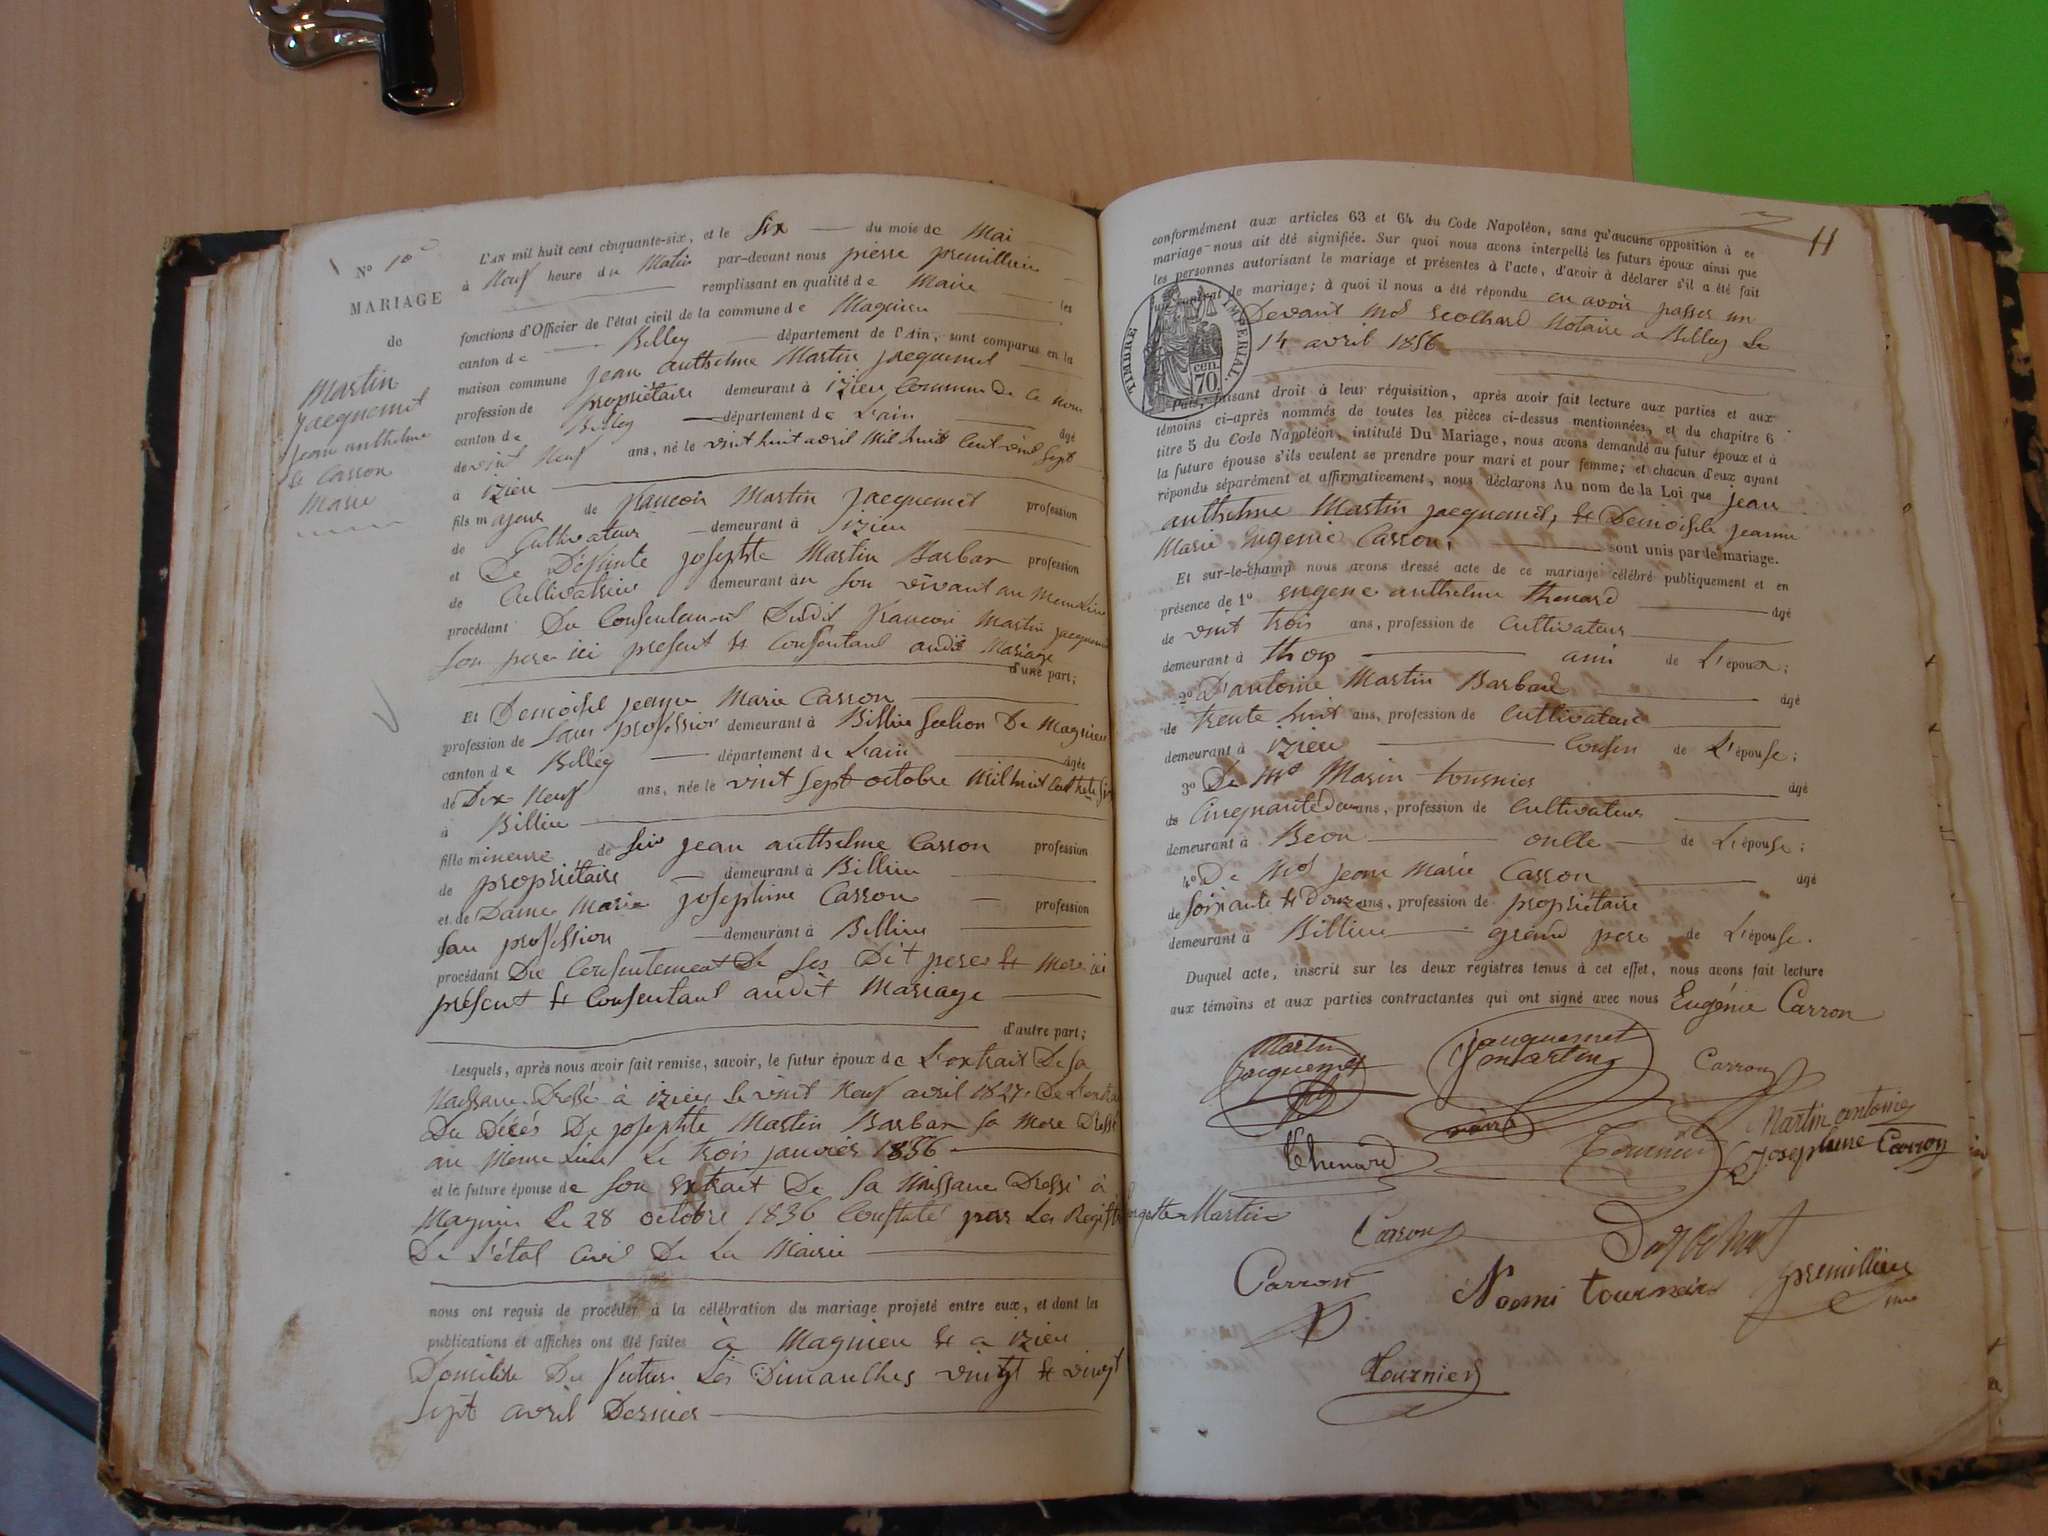 N° 10
MARIAGE
de
Martin
Jacquemet
jean anthelme
et Carron
Marie
L'AN mil huit cent cinquante-six, et le Six du mois de Mai
à Neuf heure du Matin par-devant nous pierre premillieu
remplissant en qualité de Maire les
fonctions d'Officier de l'état civil de la commune de Magnieu
canton de Belley département de l'Ain, sont comparus en la
maison commune jean anthelme Martin jacquemet
profession de propriétaire demeurant à izieu Commune De Ce nom
canton de Belley département de L'ain âgé
de vint Neuf ans, né le vint huit avril Mil huit Cent vint Sept
à izieu
fils majeur de françois Martin jacquemet profession
de Cultivateur demeurant à izieu
et De Défunte josephte Martin Barbar profession
de Cultivatrice demeurant àn son vivant au meme Lieu
procédant Du Consentement Dudit françois Martin jacquemet
son pere ici present et Consentant audit Mariage
d'une part;
Et Demoisel jeanne Marie Carron
profession de sans profession demeurant à Billieu Section De Magnieu
canton de Belley département de L'ain âgée
de Dix Neuf ans, née le vint sept octobre Mil huit Cent trente Six
à Billieu
fille mineure de sieur jean anthelme Carron profession
de propriétaire demeurant à Billieu
et de Dame Marie josephine Carron profession
san profession demeurant à Billieu
procédant Du Consentement De Ses Dit pere et Mere ici
présent et Consentant audit Mariage
d'autre part;
Lesquels, après nous avoir fait remise, savoir, le futur époux de L'extrait De Sa
Naissance Dressé à izieu Le vint Neuf avril 1827. De L'extrait
Du Décés De josephte Martin Barbar Sa Mere Dressé
au Meme Lieu Le trois janvier 1856
et la future épouse de son extrait De Sa Naissance Dressé à
Magnieu Le 28 octobre 1836 Constaté par Les Registre
De L'état Civil De La Mairie
nous ont requis de procéder à la célébration du mariage projeté entre eux, et dont les
publications et affiches ont été faites à Magnieu et a izieu
Domicile Du futur Les Dimanches vingt et vingt
sept avril Dernier
11
conformément aux articles 63 et 64 du Code Napoléon, sans qu'aucune opposition à ce
mariage nous ait été signifiée. Sur quoi nous avons interpellé les futurs époux ainsi que
les personnes autorisant le mariage et présentes à l'acte, d'avoir à déclarer s'il a été fait
un contrat de mariage; à quoi il nous a été répondu en avoir passer un
Devant Notaire a Belley Le
14 avril 1856
TIMBRE IMPERIAL.
CEN. 70.
Puis, faisant droit à leur réquisition, après avoir fait lecture aux parties et aux
témoins ci-après nommés de toutes les pièces ci-dessus mentionnées, et du chapitre 6
titre 5 du Code Napoléon, intitulé Du Mariage, nous avons demandé au futur époux et à
la future épouse s'ils veulent se prendre pour mari et pour femme; et chacun d'eux ayant
répondu séparément et affirmativement, nous déclarons Au nom de la Loi que jean
anthelme Martin jacquemet, et Demoisele jeanne
Marie Eugenie Carron, sont unis par le mariage.
Et sur-le-champ nous avons dressé acte de ce mariage célébré publiquement et en
présence de 1° eugene anthelme thenard âgé
de vint trois ans, profession de Cultivateur
demeurant à thoy ami de L'époux;
2° D'antoine Martin Barbar âgé
de trente huit ans, profession de Cultivateur
demeurant à izieu Cousin de L'épouse;
3° De Marin tournier âgé
de Cinquante Deux ans, profession de Cultivateur
demeurant à Beon oncle de L'épouse;
4° De jean Marie Carron âgé
de soixante et Douze ans, profession de propriétaire
demeurant à Billieu grand pere de L'épouse.
Duquel acte, inscrit sur les deux registres tenus à cet effet, nous avons fait lecture
aux témoins et aux parties contractantes qui ont signé avec nous Eugénie Carron
Martin jacquemet
jacquemet martin
Carron
Martin antoine
Thenard
Tournier
Josephine Carron
Martin
Carron
Carron
Noemi tournier
premillieu
Tournier